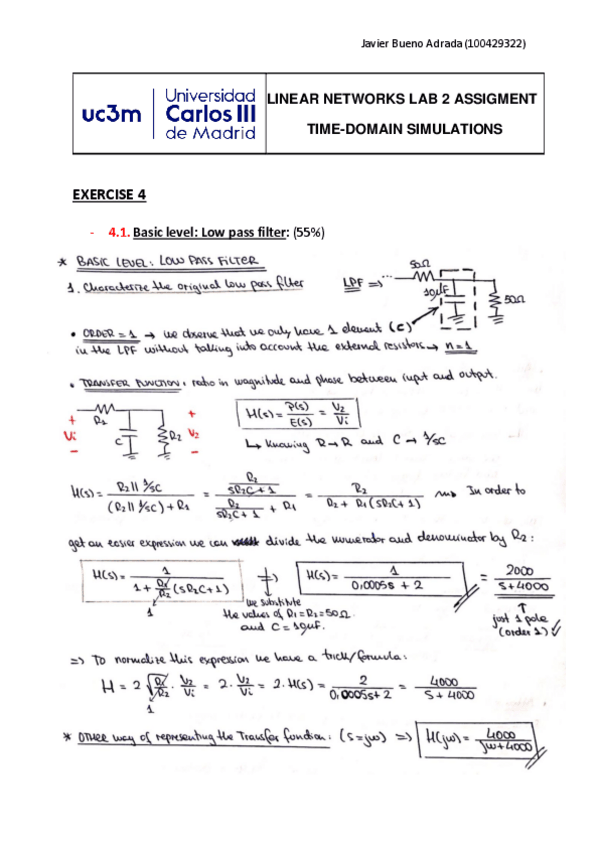 Javier Bueno Adrada (100429322)
uc3m
Universidad
Carlos III
de Madrid
LINEAR NETWORKS LAB 2 ASSIGMENT
TIME-DOMAIN SIMULATIONS
EXERCISE 4
- 4.1. Basic level: Low pass filter: (55%)
* BASIC LEVEL: LOW PASS FILTER
1. Characterize the original low pass filter
LPF => ...
50Ω
10µF
50Ω
• ORDER = 1 → we observe that we only have 1 element (C)
in the LPF without talking into account the external resistors → n=1
• TRANSFER FUNCTION: ratio in magnitude and phase between input and output.
+ Vi -
R1
C
R2
+ V2 -
H(s) = P(s)/E(s) = V2/Vi
↳ Knowing R → R and C → 1/sC
H(s) = (R2 || 1/sC)/((R2 || 1/sC) + R1) = (R2/(sR2C+1))/(R2/(sR2C+1) + R1) = R2/(R2 + R1(sR2C+1)) In order to
get an easier expression we can divide the numerator and denominator by R2:
H(s) = 1/(1 + R1/R2 (sR2C+1)) => H(s) = 1/(0,0005s + 2) = 2000/(s+4000)
1
we substitute
the values of R1=R2=50Ω
and C = 10µF.
just 1 pole
(order 1) ✓
=> To normalize this expression we have a trick/formula:
H = 2 √(R1/R2) · V2/Vi = 2 · V2/Vi = 2 · H(s) = 2/(0,0005s+2) = 4000/(s+4000)
1
* OTHER way of representing the Transfer function: (s=jω) => H(jω) = 4000/(jω+4000)